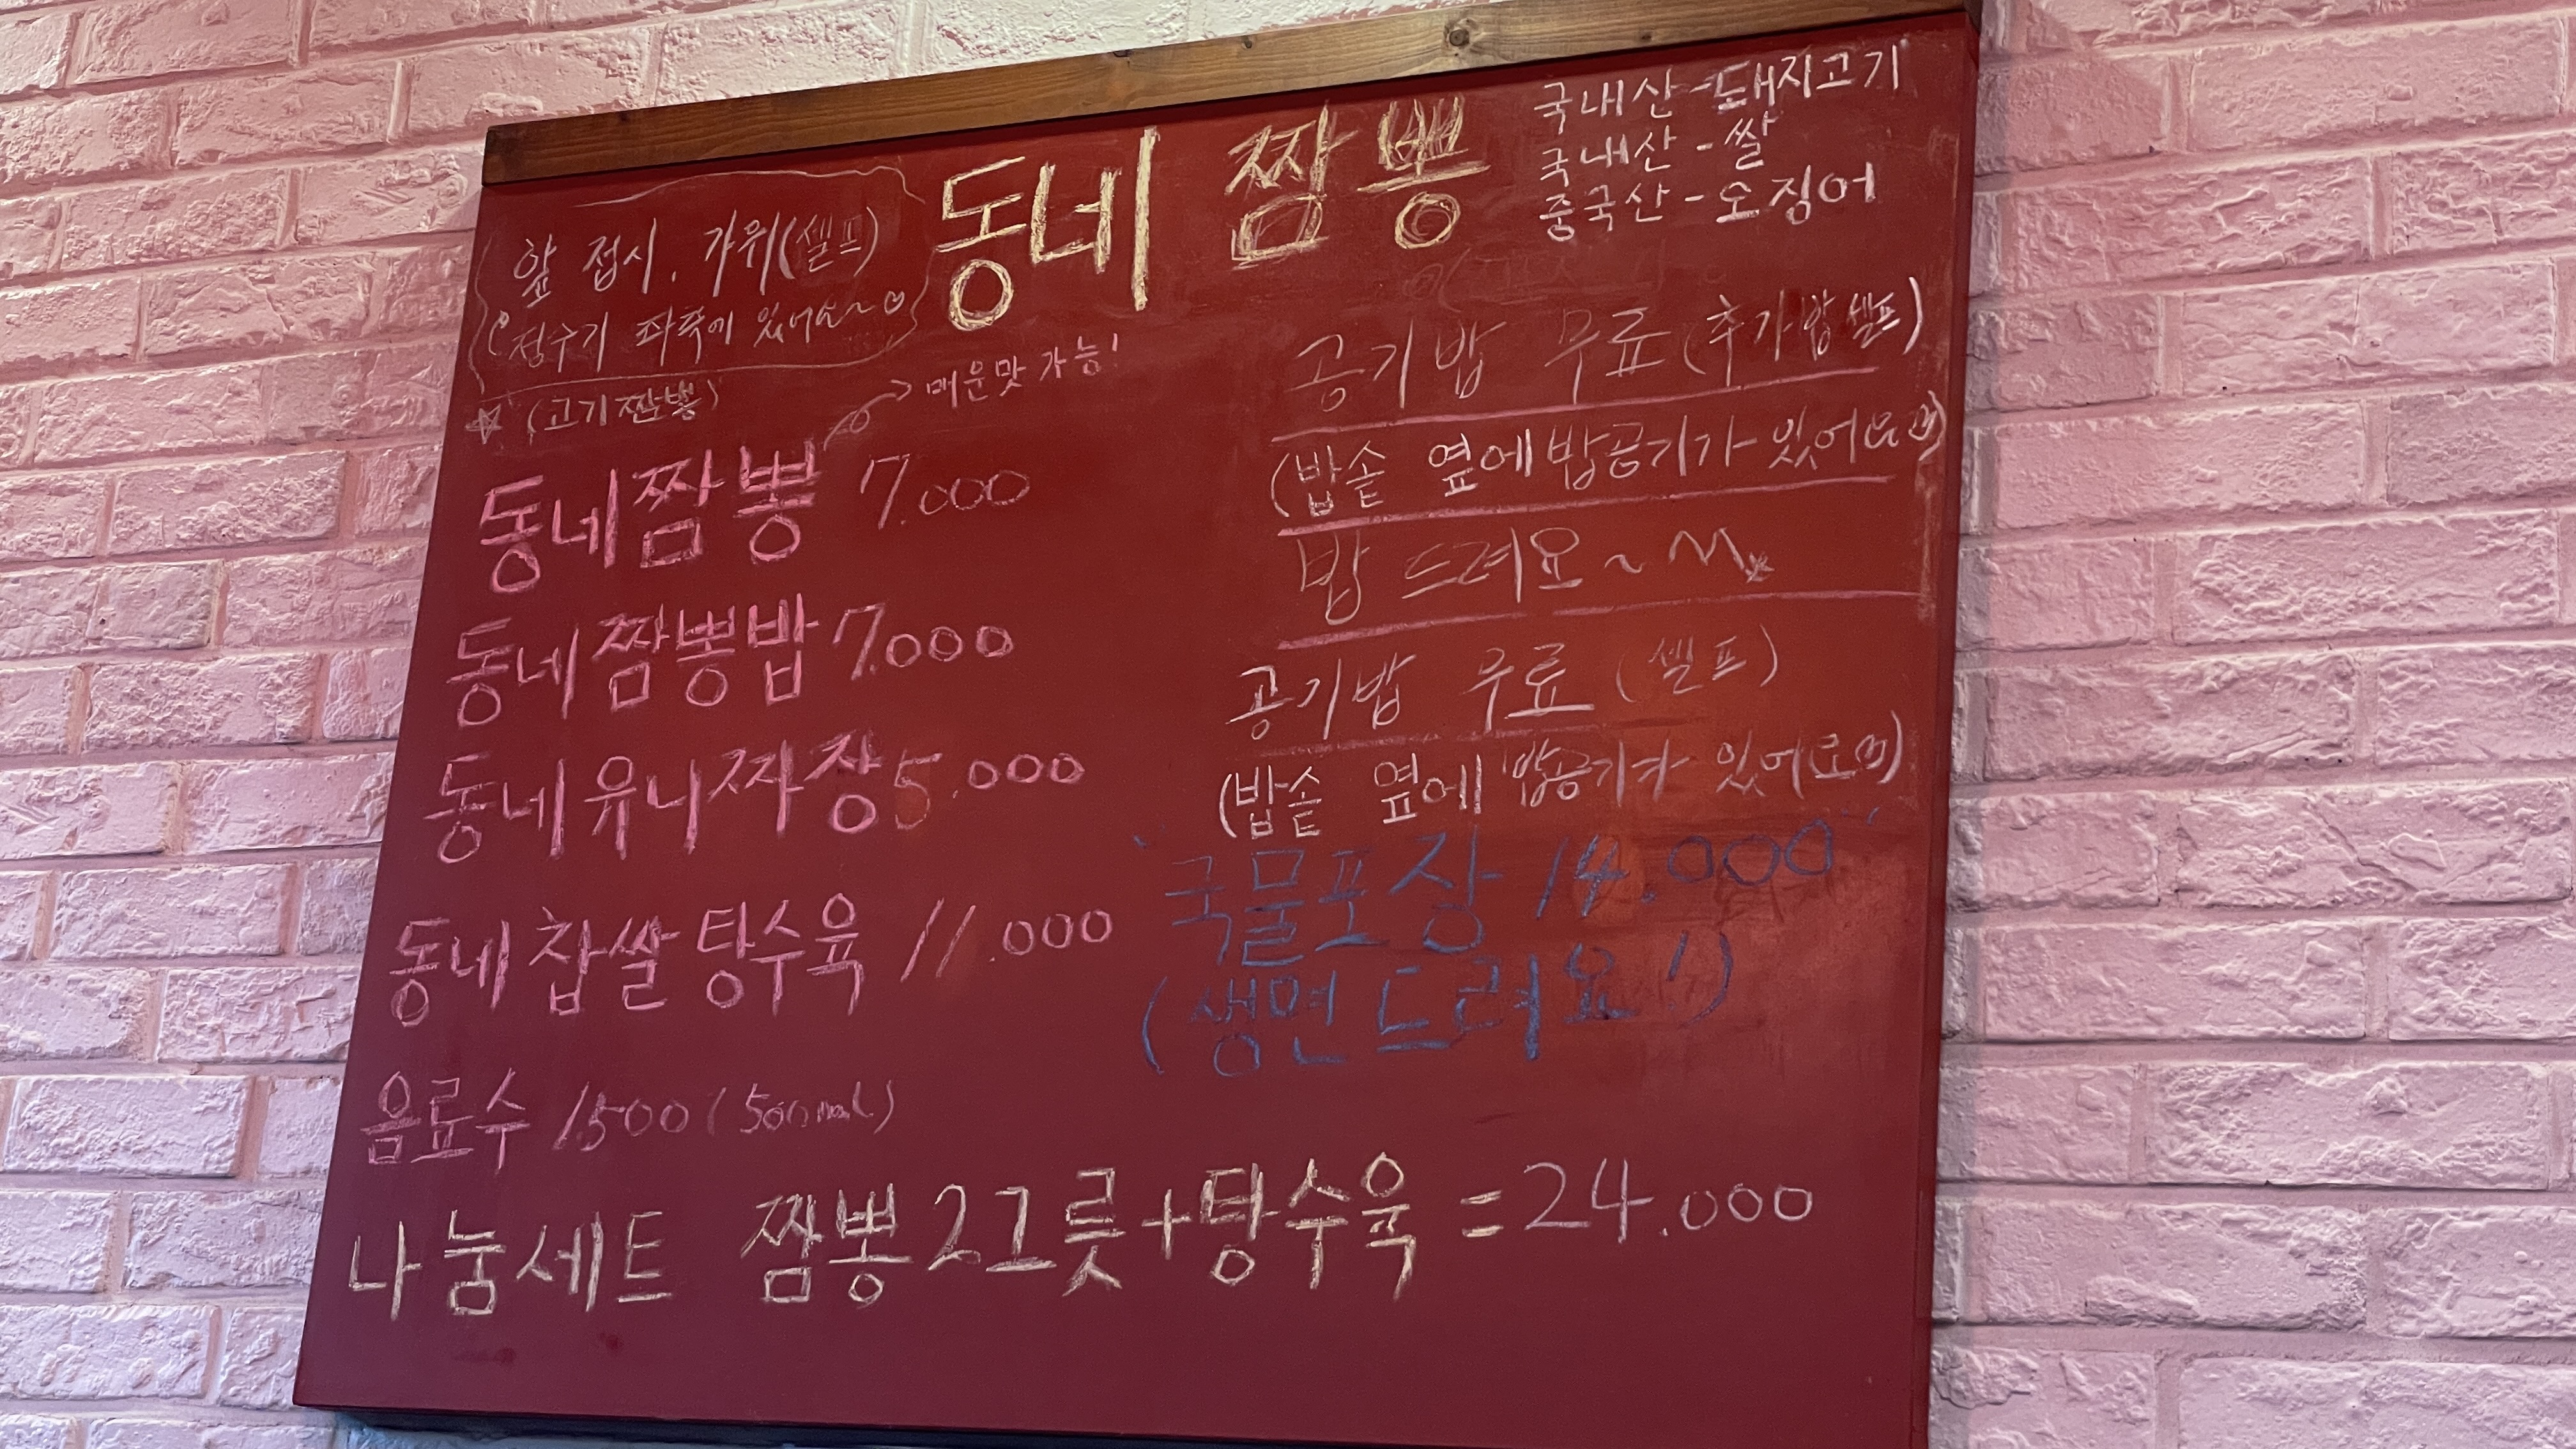 동네 짬뽕
국내산 - 돼지고기
국내산 - 쌀
중국산 - 오징어
앞 접시. 가위(셀프)
정수기 좌측에 있어요~♡
☆ (고기짬뽕)
매운맛 가능!
동네짬뽕 7.000
동네짬뽕밥 7.000
동네유니짜장 5.000
동네찹쌀탕수육 11.000
음료수 1500 (500ml)
공기밥 무료 (추가밥 셀프)
(밥솥 옆에 밥공기가 있어요)
밥 드려요~
공기밥 무료 (셀프)
(밥솥 옆에 밥공기가 있어요)
"국물포장 14.000"
(생면 드려요!)
나눔세트 짬뽕2그릇+탕수육 = 24.000